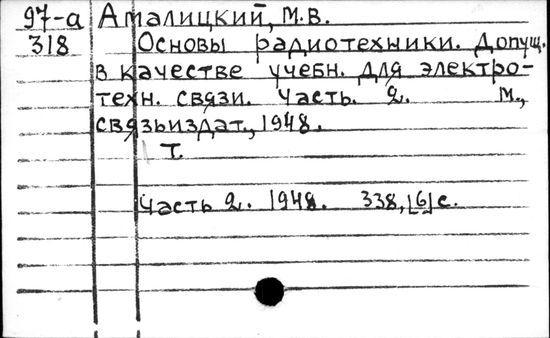 97-а Амалицкий, М.В.
318 Основы радиотехники. Допущ.
в качестве учебн. для электро-
техн. связи. Часть. 2. М.,
связьиздат., 1948.
Т.
Часть 2. 1948. 338, [6] с.